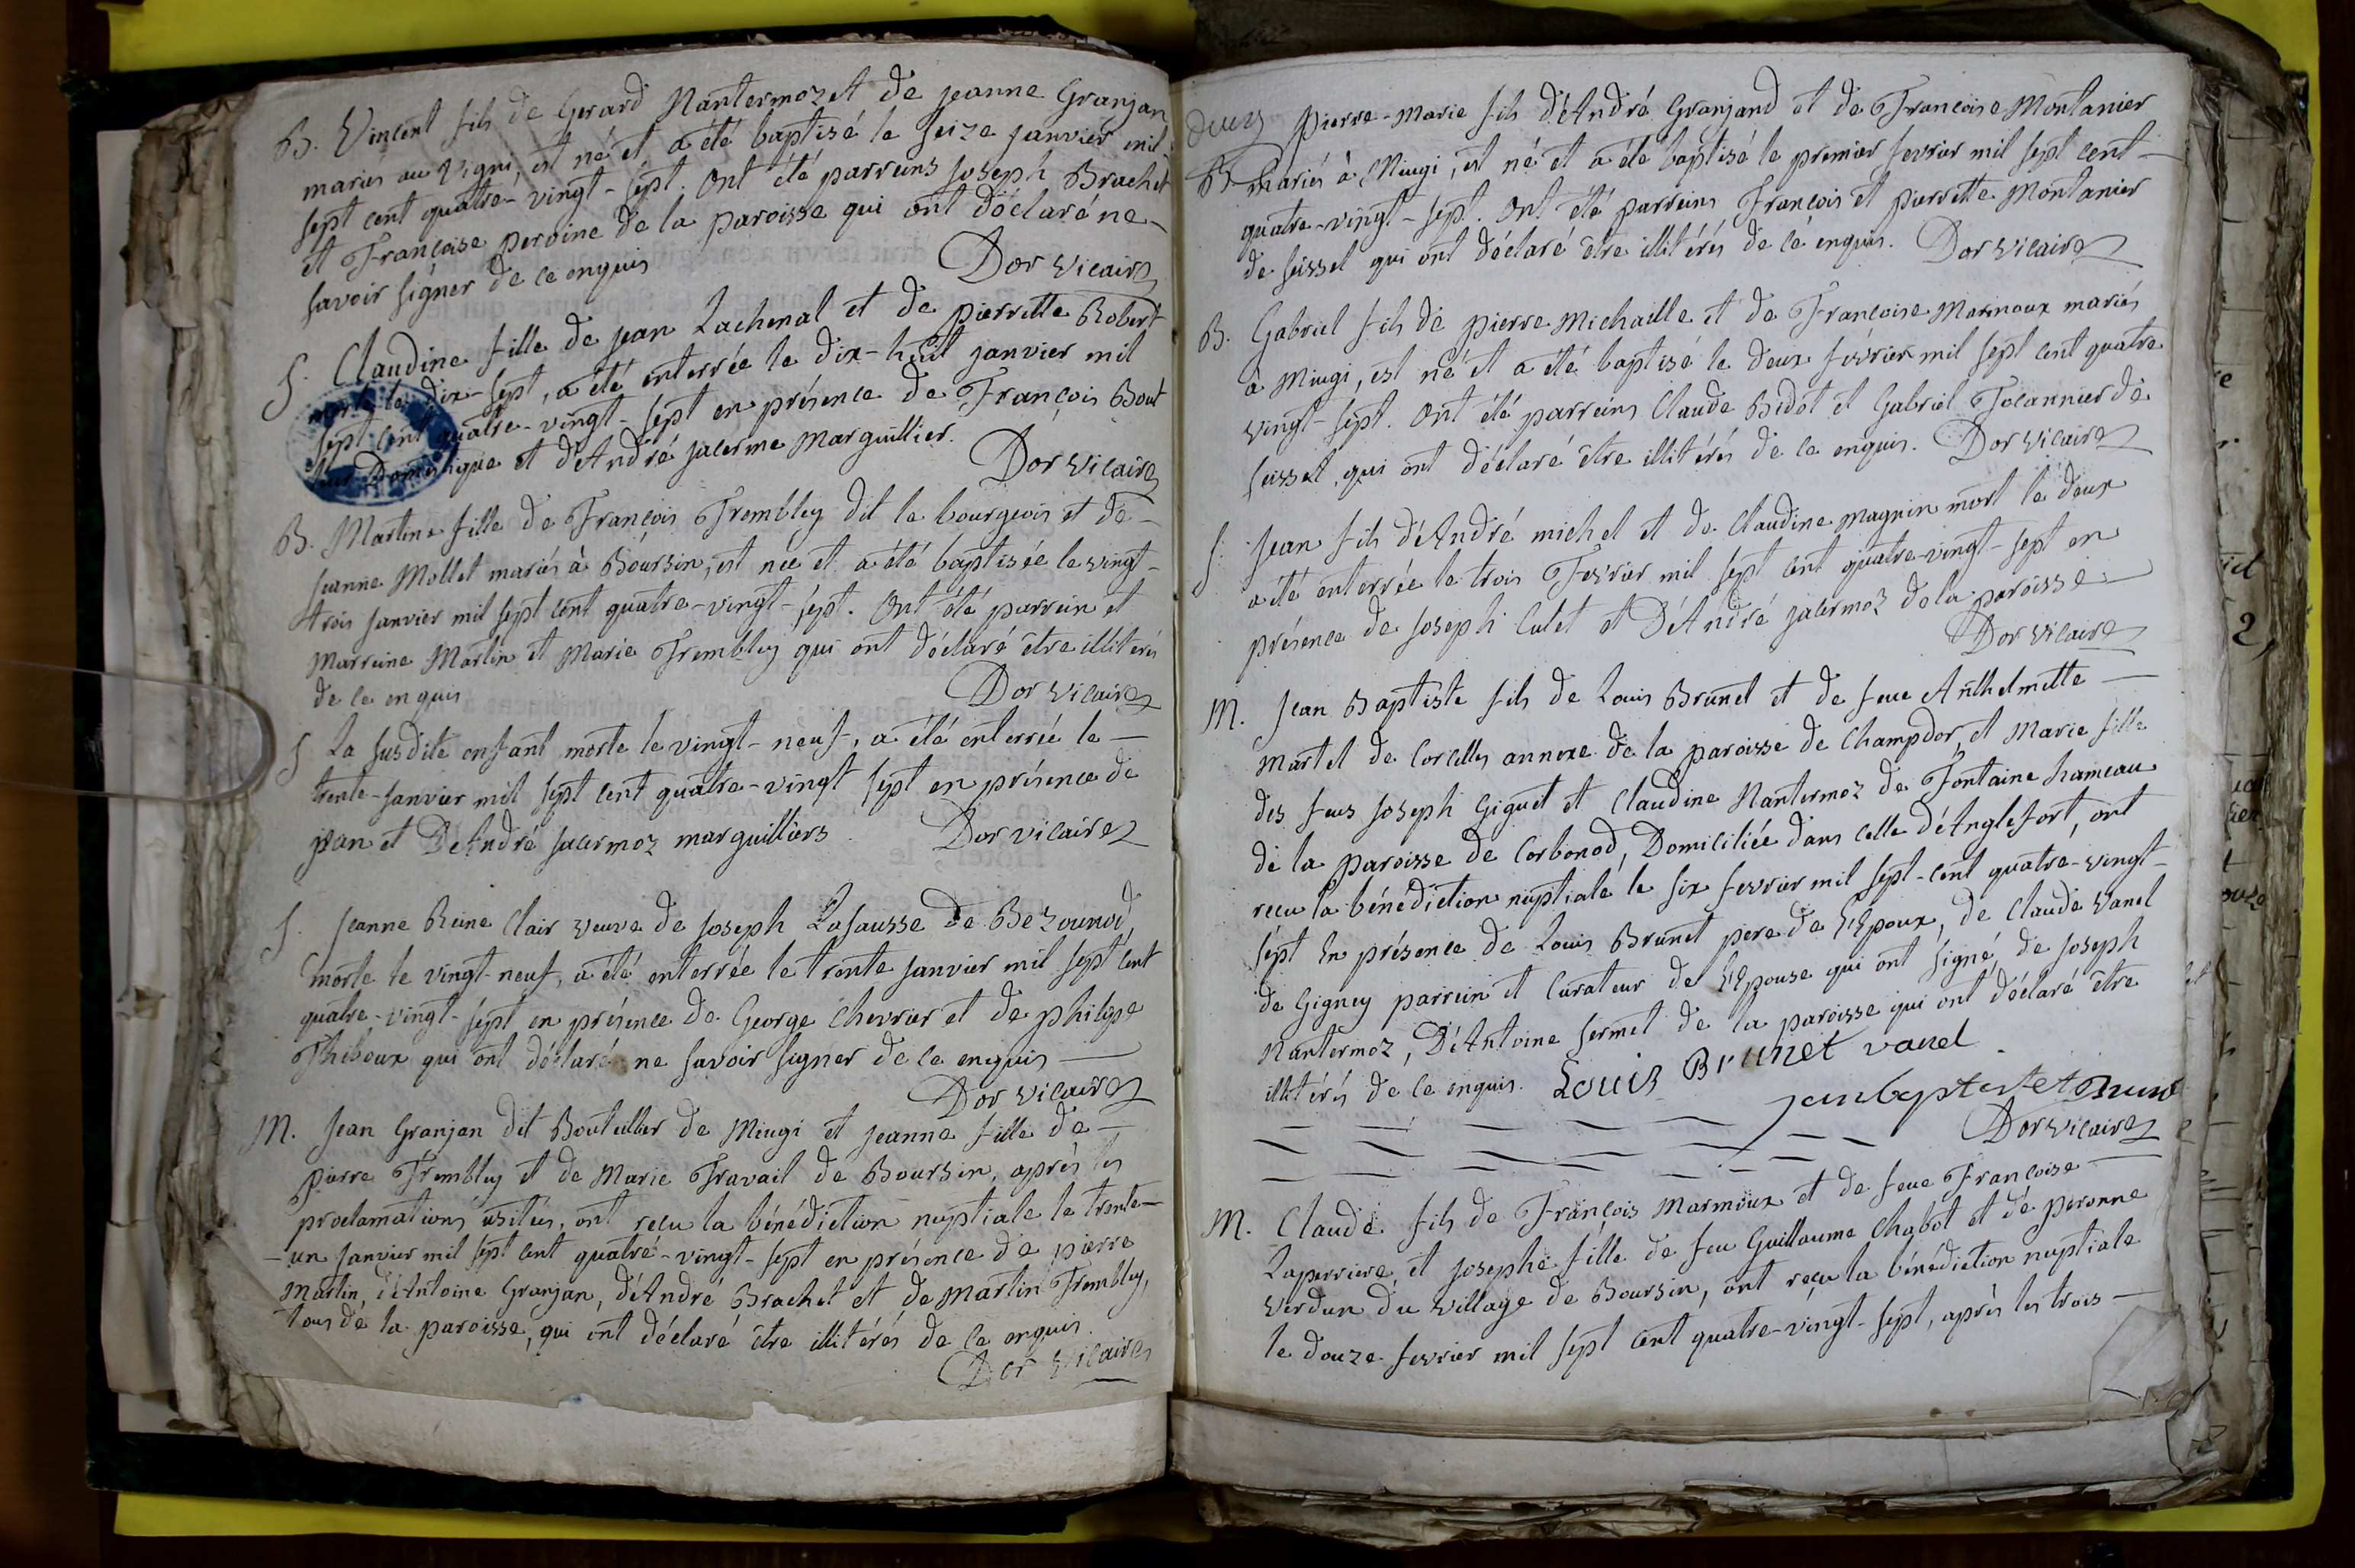 B. Vincent fils de Gerard Nantermoz et de jeanne Granjan
mariés au Vigni, est né et a été baptisé le seize janvier mil
sept cent quatre-vingt-sept. Ont été parreins joseph Brachet
et Françoise peroine de la paroisse qui ont déclaré ne-
savoir signer de ce enquis
Dor vicaire
S. Claudine fille de jean Lachenal et de pierrette Robert
morte le dix-sept, a été enterrée le dix-huit janvier mil
sept cent quatre-vingt-sept en présence de François Bout
Domestique et d'André jacerme marguillier.
Dor vicaire
B. Martine fille de François Trembley dit le bourgeois et de-
jeanne Mollet mariés à Boursin, est née et a été baptisée le vingt-
trois janvier mil sept cent quatre-vingt-sept. Ont été parrein et
marreine Martin et Marie Trembley qui ont déclaré être illitérés
de ce enquis
Dor vicaire
S La susdite enfant morte le vingt-neuf, a été enterrée le-
trente-janvier mil sept cent quatre-vingt sept en présence de
jean et D'André jacermoz marguilliers
Dor vicaire
S. jeanne Reine Clair veuve de joseph Lafausse de Bezounod,
morte le vingt-neuf, a été enterrée le trente janvier mil sept cent
quatre-vingt-sept en présence de George Chevrier et de philippe
Thiboux qui ont déclaré ne savoir signer de ce enquis-
Dor vicaire
M. jean Granjan dit Bouteiller de Mieugi et jeanne fille de-
pierre Trembley et de Marie Travail de Boursin, après les
proclamations usitées, ont reçu la bénédiction nuptiale le trente-
-un janvier mil sept cent quatre-vingt-sept en présence de pierre
Martin, d'Antoine Granjan, d'André Brachet et de Martin Trembley,
tous de la paroisse, qui ont déclaré être illitérés de ce enquis.
Dor vicaire
deux
pierre-marie fils d'André Granjand et de Françoise Montanier
B mariés à Mieugi, est né et a été baptisé le premier fevrier mil sept cent-
quatre-vingt-sept. Ont été parreins François et pierrette Montanier
de seissel qui ont déclaré être illitérés de ce enquis.
Dor vicaire
B. Gabriel fils de pierre Michaille et de Françoise Marmoux mariés
à Mieugi, est né et a été baptisé le deux fevrier mil sept cent quatre
vingt-sept. Ont été parreins Claude Bidot et Gabriel Jocannier de
seissel, qui ont déclaré être illitérés de ce enquis.
Dor vicaire
S. jean fils d'André michel et de Claudine magnin mort le deux
a été enterrée le trois Fevrier mil sept cent quatre-vingt-sept en
présence de joseph Cutet et D'André jacermoz de la paroisse-
Dor vicaire
M. jean Baptiste fils de Louis Brunet et de feue Anthelmette-
Martel de Corcelles annexe de la paroisse de Champdor, et Marie fille
des feus joseph Giguet et Claudine Nantermoz de Fontaine hameau
de la paroisse de Corbonod, Domiciliée dans celle d'Anglefort, ont
reçu la bénédiction nuptiale le six fevrier mil sept-cent quatre-vingt-
sept En présence de Louis Brunet pere de l'Epoux, de Claude Vanel
de Gigney parrein et Curateur de l'Epouse qui ont signé, de joseph
Nantermoz, D'Antoine sermet de la paroisse qui ont déclaré être
illitérés de ce enquis.
Louis Brunet vanel
jenbaptestet Brunet
Dor vicaire
M. Claude fils de François Marmoux et de feue Françoise-
Laperriere, et josephe fille de feu Guillaume Chabot et de peronne
Verdun du village de Boursin, ont reçu la bénédiction nuptiale
le douze fevrier mil sept cent quatre-vingt-sept, après les trois-